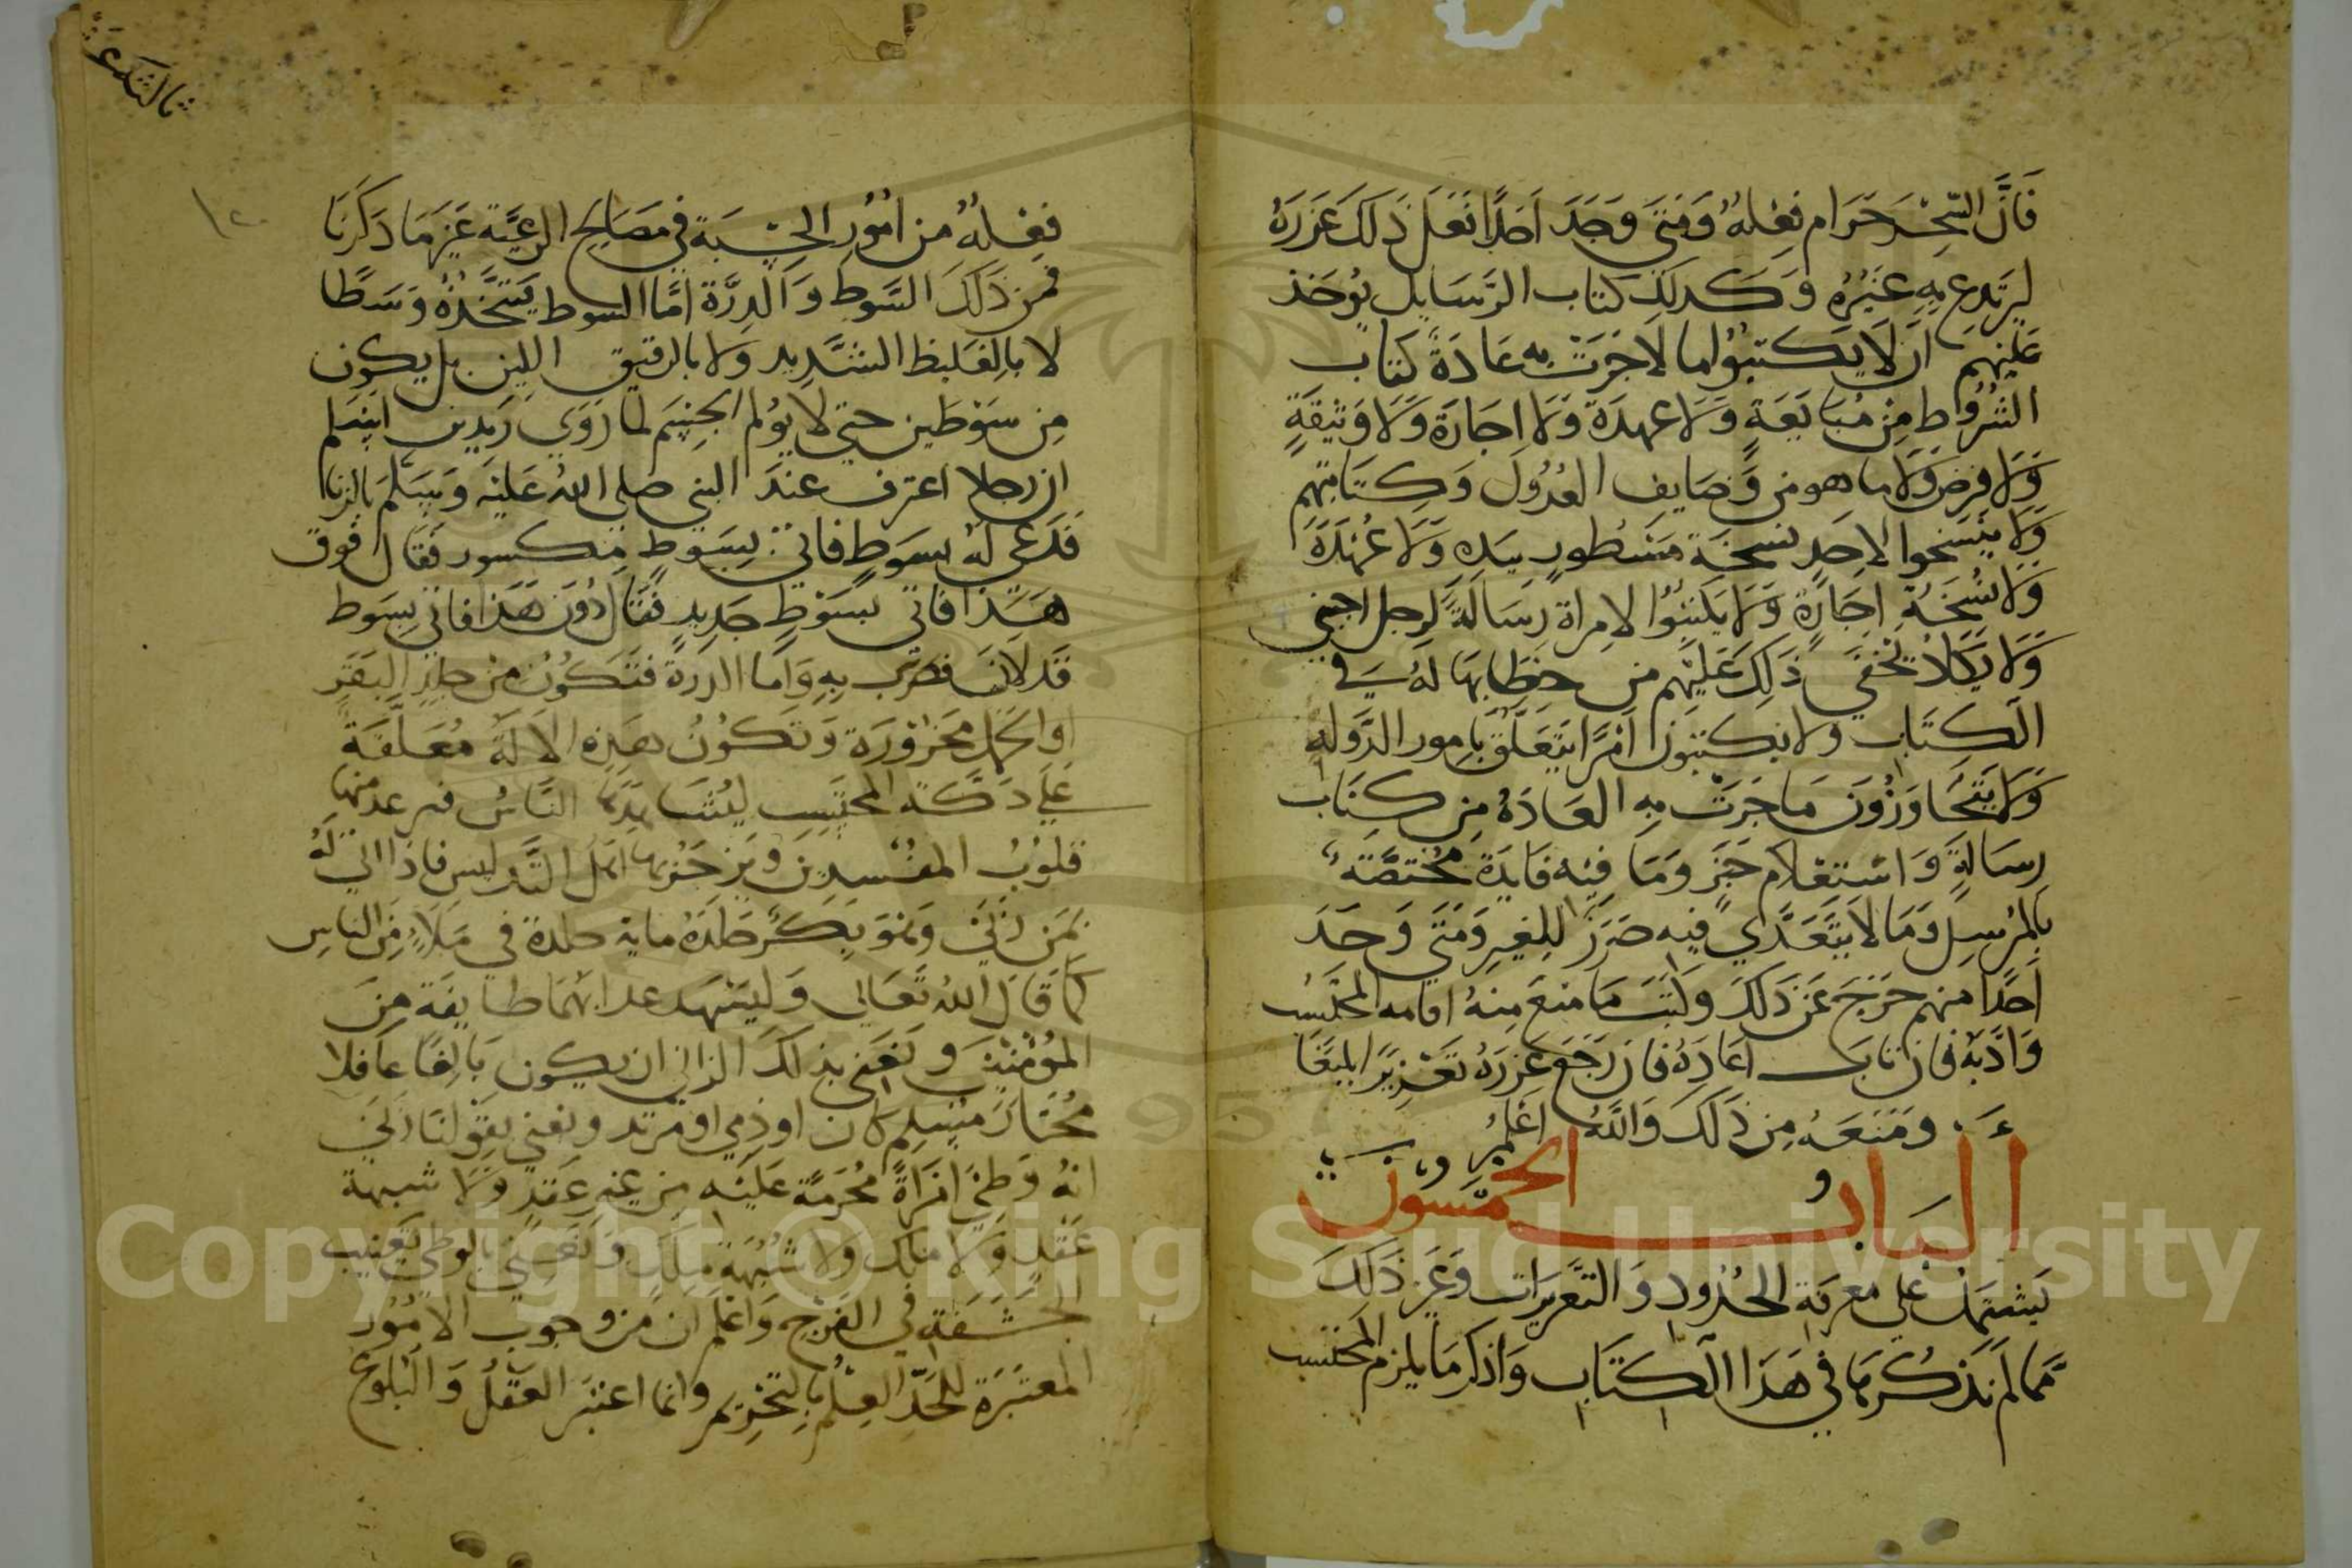 فَانَّ السِّحْرَ حَرَام فِعْلهُ وَمَتَى وَجَدَ اَحَدًا فَعَلَ ذَلَكَ عَزَرَهُ
ليَرتَدِع بِهِ غَيْرُهُ وَكَدلِكَ كتاب الرَّسَايل يُوخَذ
عَليْهِم اَن لَا يَكتبُوُا ما لَا جَرَتْ بِه عَادَةُ كتاب
الشُرُوُطِ مِنْ مُبَايَعَةٍ وَلَا عهدَة وَلَا اجَارَة وَلَا وَثيقَةٍ
وَلَا فرض وَلَا ما هو من وَضَايِف العُدُولَ وَكِتَابَتهِم
وَلَا يَنْسَخوا لاحَدٍ نسخَة مَسْطُورٍ بيَدِهِ وَلَا عُهدَة
وَلَا نُسْخَةِ اِجَارَةٍ وَلَا يَكتبُوُا لامراة رِسَالَةً لرجل اجنبي
وَلَا يكَادُ تَخفَي ذَلِكَ عَلَيْهِم من خِطَابِهَا لَهُ في
الكِتَابِ ولا يكتبُون اَمْرًا يَتَعَلَّق بِامور الدَّوله
وَلَا يَتَجَاوَزُونَ مَا جَرَتْ بِهِ العَادَةُ مِن كِتَاب
رِسَالَةٍ وَاسْتعْلَام خَبَرٍ وَمَا فِيْهِ فَايدَة مُختَصَّة
بِالمُرْسِل وَمَا لاَ يَتَعَدَّي فِيْهِ ضَرَرٌ لِلغيرِ وَمَتَي وَجَدَ
اَحَدًا منهم خَرَجَ عَن ذَلَكَ وكَتبَ مَا منعَ مِنهُ اقامه المحتَسب
وَادَّبَهُ فان تاب اعَادَهُ فان رَجَعَ عَزرَهُ تعَزِيرًا بليغًا
وَمَنَعَهُ مِن ذَلَكَ وَاللَّهُ اعْلَمُ
البَاب الخمسُون
يَشتمِلُ عَلى معرفَةِ الحُدُودِ وَالتَّعزيرَاتِ وَغَيْرِ ذَلكَ
مّما لَم نَذكُرهَا في هَذَا الكتَابِ وَاذكر مَا يلزَم المُحتَسِب
ثالث عشر
١٢٠
فِعْلهُ مِن اُمُوُر الحِسْبَةِ في مَصَالحِ الرعيَّة غَيْر مَا ذَكَرنَا
فمن ذَلكَ السَّوط وَالدِرَّة امَّا السوط يَتَّخِذهُ وَسَطًا
لا بالغَليظ الشَّديد وَلا بالرقيق اللِين بل يكون
مِن سَوْطين حتى لا يُؤلم الجِسْم لما رَوَي زَيدبن اَسْلم
ان رجلا اعترف عندَ النبي صلى اللهُ عَليْهِ وَسَلَّمَ بالزنا
فَدَعي لهُ بسوطٍ فاتي بسَوطٍ مَكسور فقال فَوق
هَذا فاتي بسَوْطٍ جَديدٍ فقَال دُونَ هَذا فاتى بِسَوط
قَد لَان فضرب بِهِ وَامّا الدرةُ فتَكوُنُ من جلدِ البَقَرِ
او الجمل مَخزُوْرَة وَتكوُنُ هَذِهِ الاَلَة مُعَلَّقَةً
عَلي دَكّة المحتَسِبِ ليُشاهِدهَا النَّاسُ فترعد منهَا
قلوُبُ المفسدينَ وَينزَجَر بها اهل التَّدليس فاذَا اتي لَهُ
بمَن زَنَي وَهوَ بِكْرٌ جَلدَهُ ماية جلدة في مَلاءٍ مِنَ الناسِ
كَمَا قَالَ اللهُ تَعَالي وَليَشهَد عَذابَهمَا طَايفَة مِنَ
المُؤمنينَ وَنعَني بذلكَ الزاني ان يكون بَالِغًا عَاقلا
مُختارًا مُسْلِم كان او ذِمي او مرتد ونعني بقولنَا زَنَي
انهُ وَطِئ امْرَاةً مُحَرمَةً عَليْهِ مِن غيرِ عَقدٍ وَلَا شبهة
عَقْدٍ وَلَا ملك ولا شُبْهَةِ مِلكٍ وَنَعْني بالوطي تغييب
الحَشَفةِ في الفَرْجِ وَاعْلم ان من وجوب الامُوُر
المعتَبَرَة للحَدِّ العِلْمُ بالتحْرِيم وانما اعتبَر العَقلُ وَالبُلُوغ